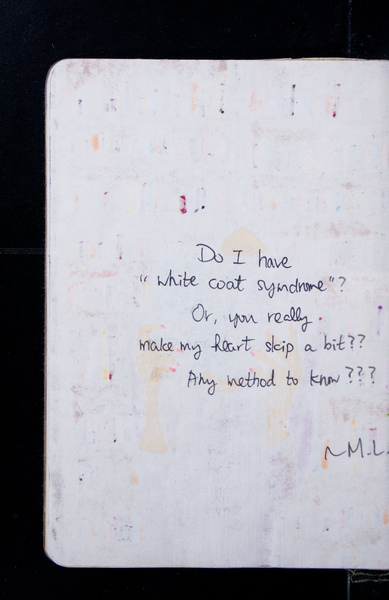 Do I have
"white coat symdrome"?
Or, you really
make my heart skip a bit??
Any method to know???
~M.L.